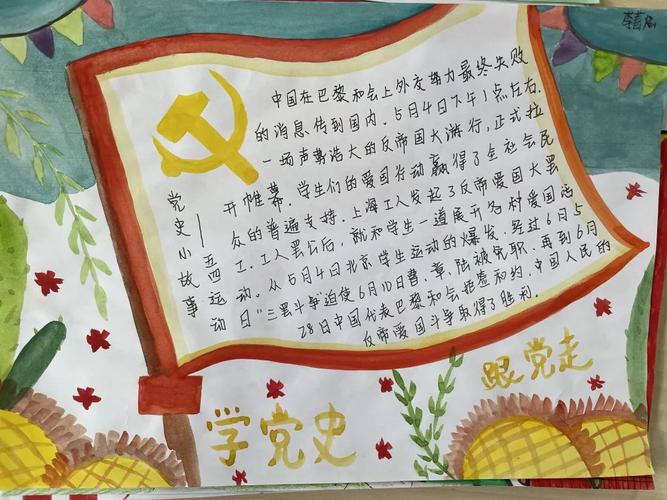 中国在巴黎和会上外交努力最终失败
的消息传到国内.5月4日下午1点左右.
一场声势浩大的反帝国大游行,正式拉
开帷幕.学生们的爱国行动赢得了全社会民
众的普遍支持.上海工人发起了反帝爱国大罢
工.工人罢公后,就和学生一道展开各种爱国活
动.从5月4日北京学生运动的爆发.经过6月5
日"三罢斗争迫使6月10日曹、章、陆被免职.再到6月
28日中国代表巴黎和会拒签和约.中国人民的
反帝爱国斗争取得了胜利.
党史小故事
——五四运动
学党史
跟党走